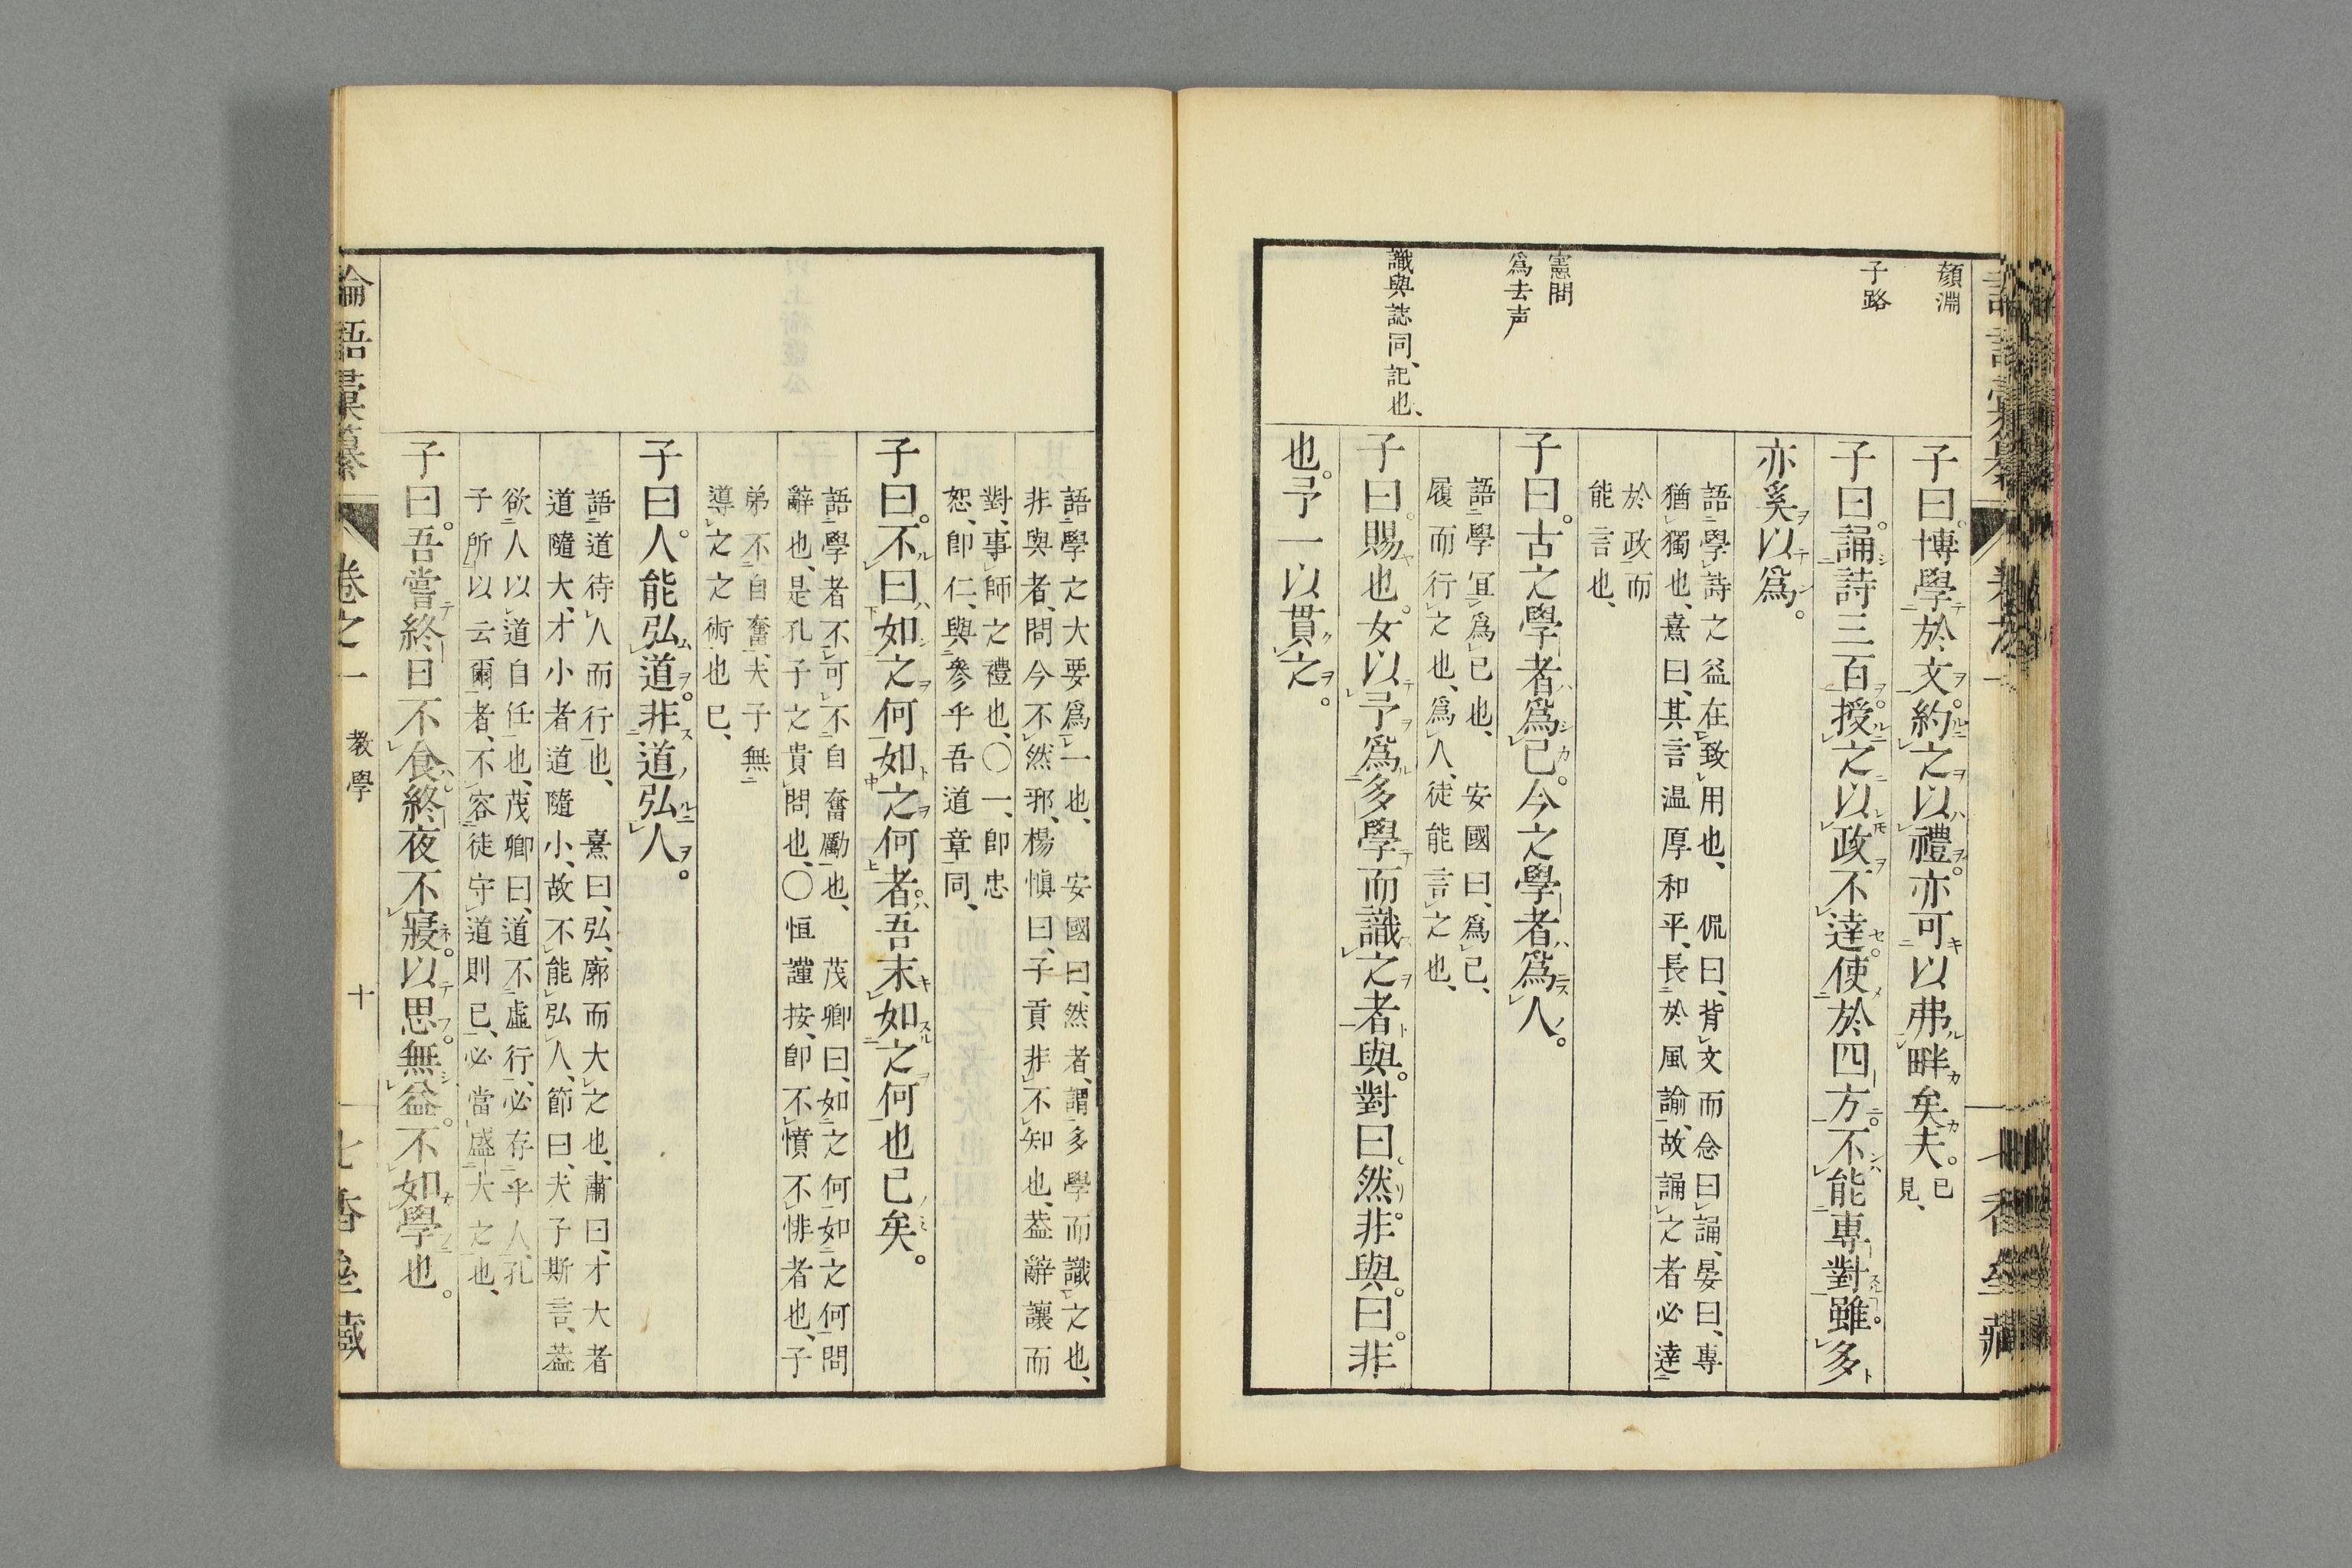 顏淵
子曰。博學於文。約之以禮。亦可以弗畔矣夫。已見、
子路
子曰。誦詩三百。授之以政不達。使於四方。不能專對。雖多
亦奚以爲。
語學詩之益在致用也、侃曰、背文而念曰誦、晏曰、專
猶獨也、熹曰、其言温厚和平、長於風諭、故誦之者必達
於政而
能言也、
憲問
爲去声
子曰。古之學者爲己。今之學者爲人。
語學冝爲己也、安國曰、爲己、
履而行之也、爲人、徒能言之也、
識與誌同、記也、
子曰。賜也。女以予爲多學而識之者與。對曰。然。非與。曰。非
也。予一以貫之。
語學之大要爲一也、安國曰、然者、謂多學而識之也、
非與者、問今不然邪、楊愼曰、子貢非不知也、葢辭讓而
對、事師之禮也、〇一、卽忠
恕、卽仁、與參乎吾道章同、
子曰。不曰如之何如之何者。吾末如之何也已矣。
語學者不可不自奮勵也、茂卿曰、如之何如之何問
辭也、是孔子之貴問也、〇恒謹按、卽不憤不悱者也、子
弟不自奮、夫子無
導之之術也已、
子曰。人能弘道。非道弘人。
語道待人而行也、熹曰、弘、廓而大之也、肅曰、才大者
道隨大、才小者道隨小、故不能弘人、節曰、夫子斯言、葢
欲人以道自任也、茂卿曰、道不虛行、必存乎人、孔
子所以云爾者、不容徒守道則已、必當盛大之也、
子曰。吾嘗終日不食。終夜不寢。以思。無益。不如學也。
論語彙纂 卷之一 教學 十 七香堂藏